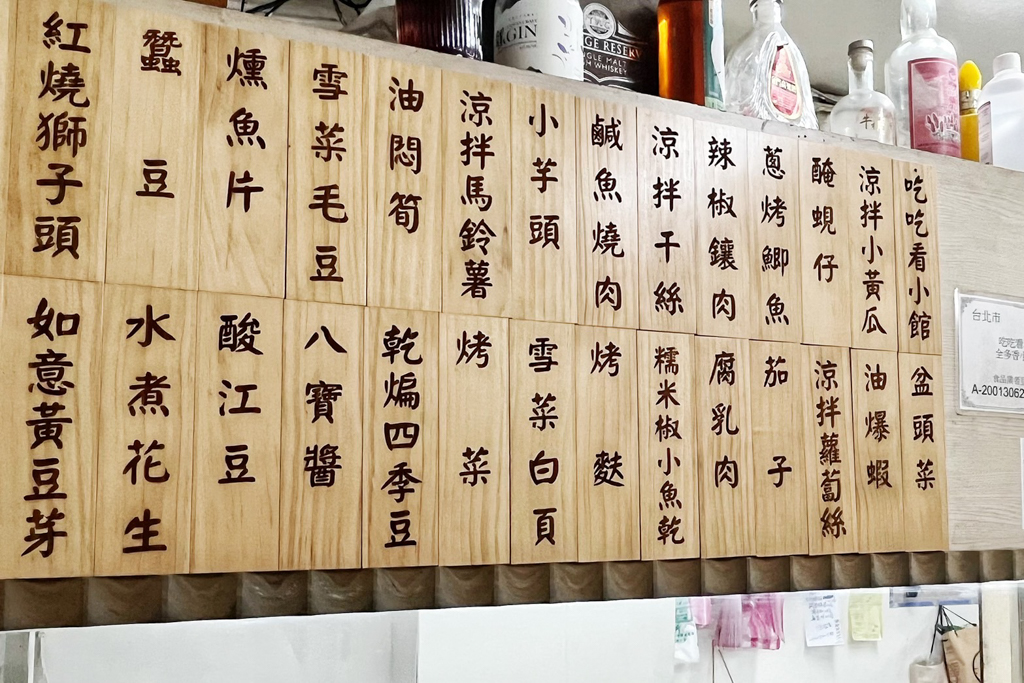 吃吃看小館
涼拌小黃瓜
醃蜆仔
蔥烤鯽魚
辣椒鑲肉
涼拌干絲
鹹魚燒肉
小芋頭
涼拌馬鈴薯
油悶筍
雪菜毛豆
燻魚片
蠶豆
紅燒獅子頭
盆頭菜
油爆蝦
涼拌蘿蔔絲
茄子
腐乳肉
糯米椒小魚乾
烤麩
雪菜白頁
烤菜
乾煸四季豆
八寶醬
酸江豆
水煮花生
如意黃豆芽
GIN
SINGLE MALT
WHISKEY
台北市
A-20013062